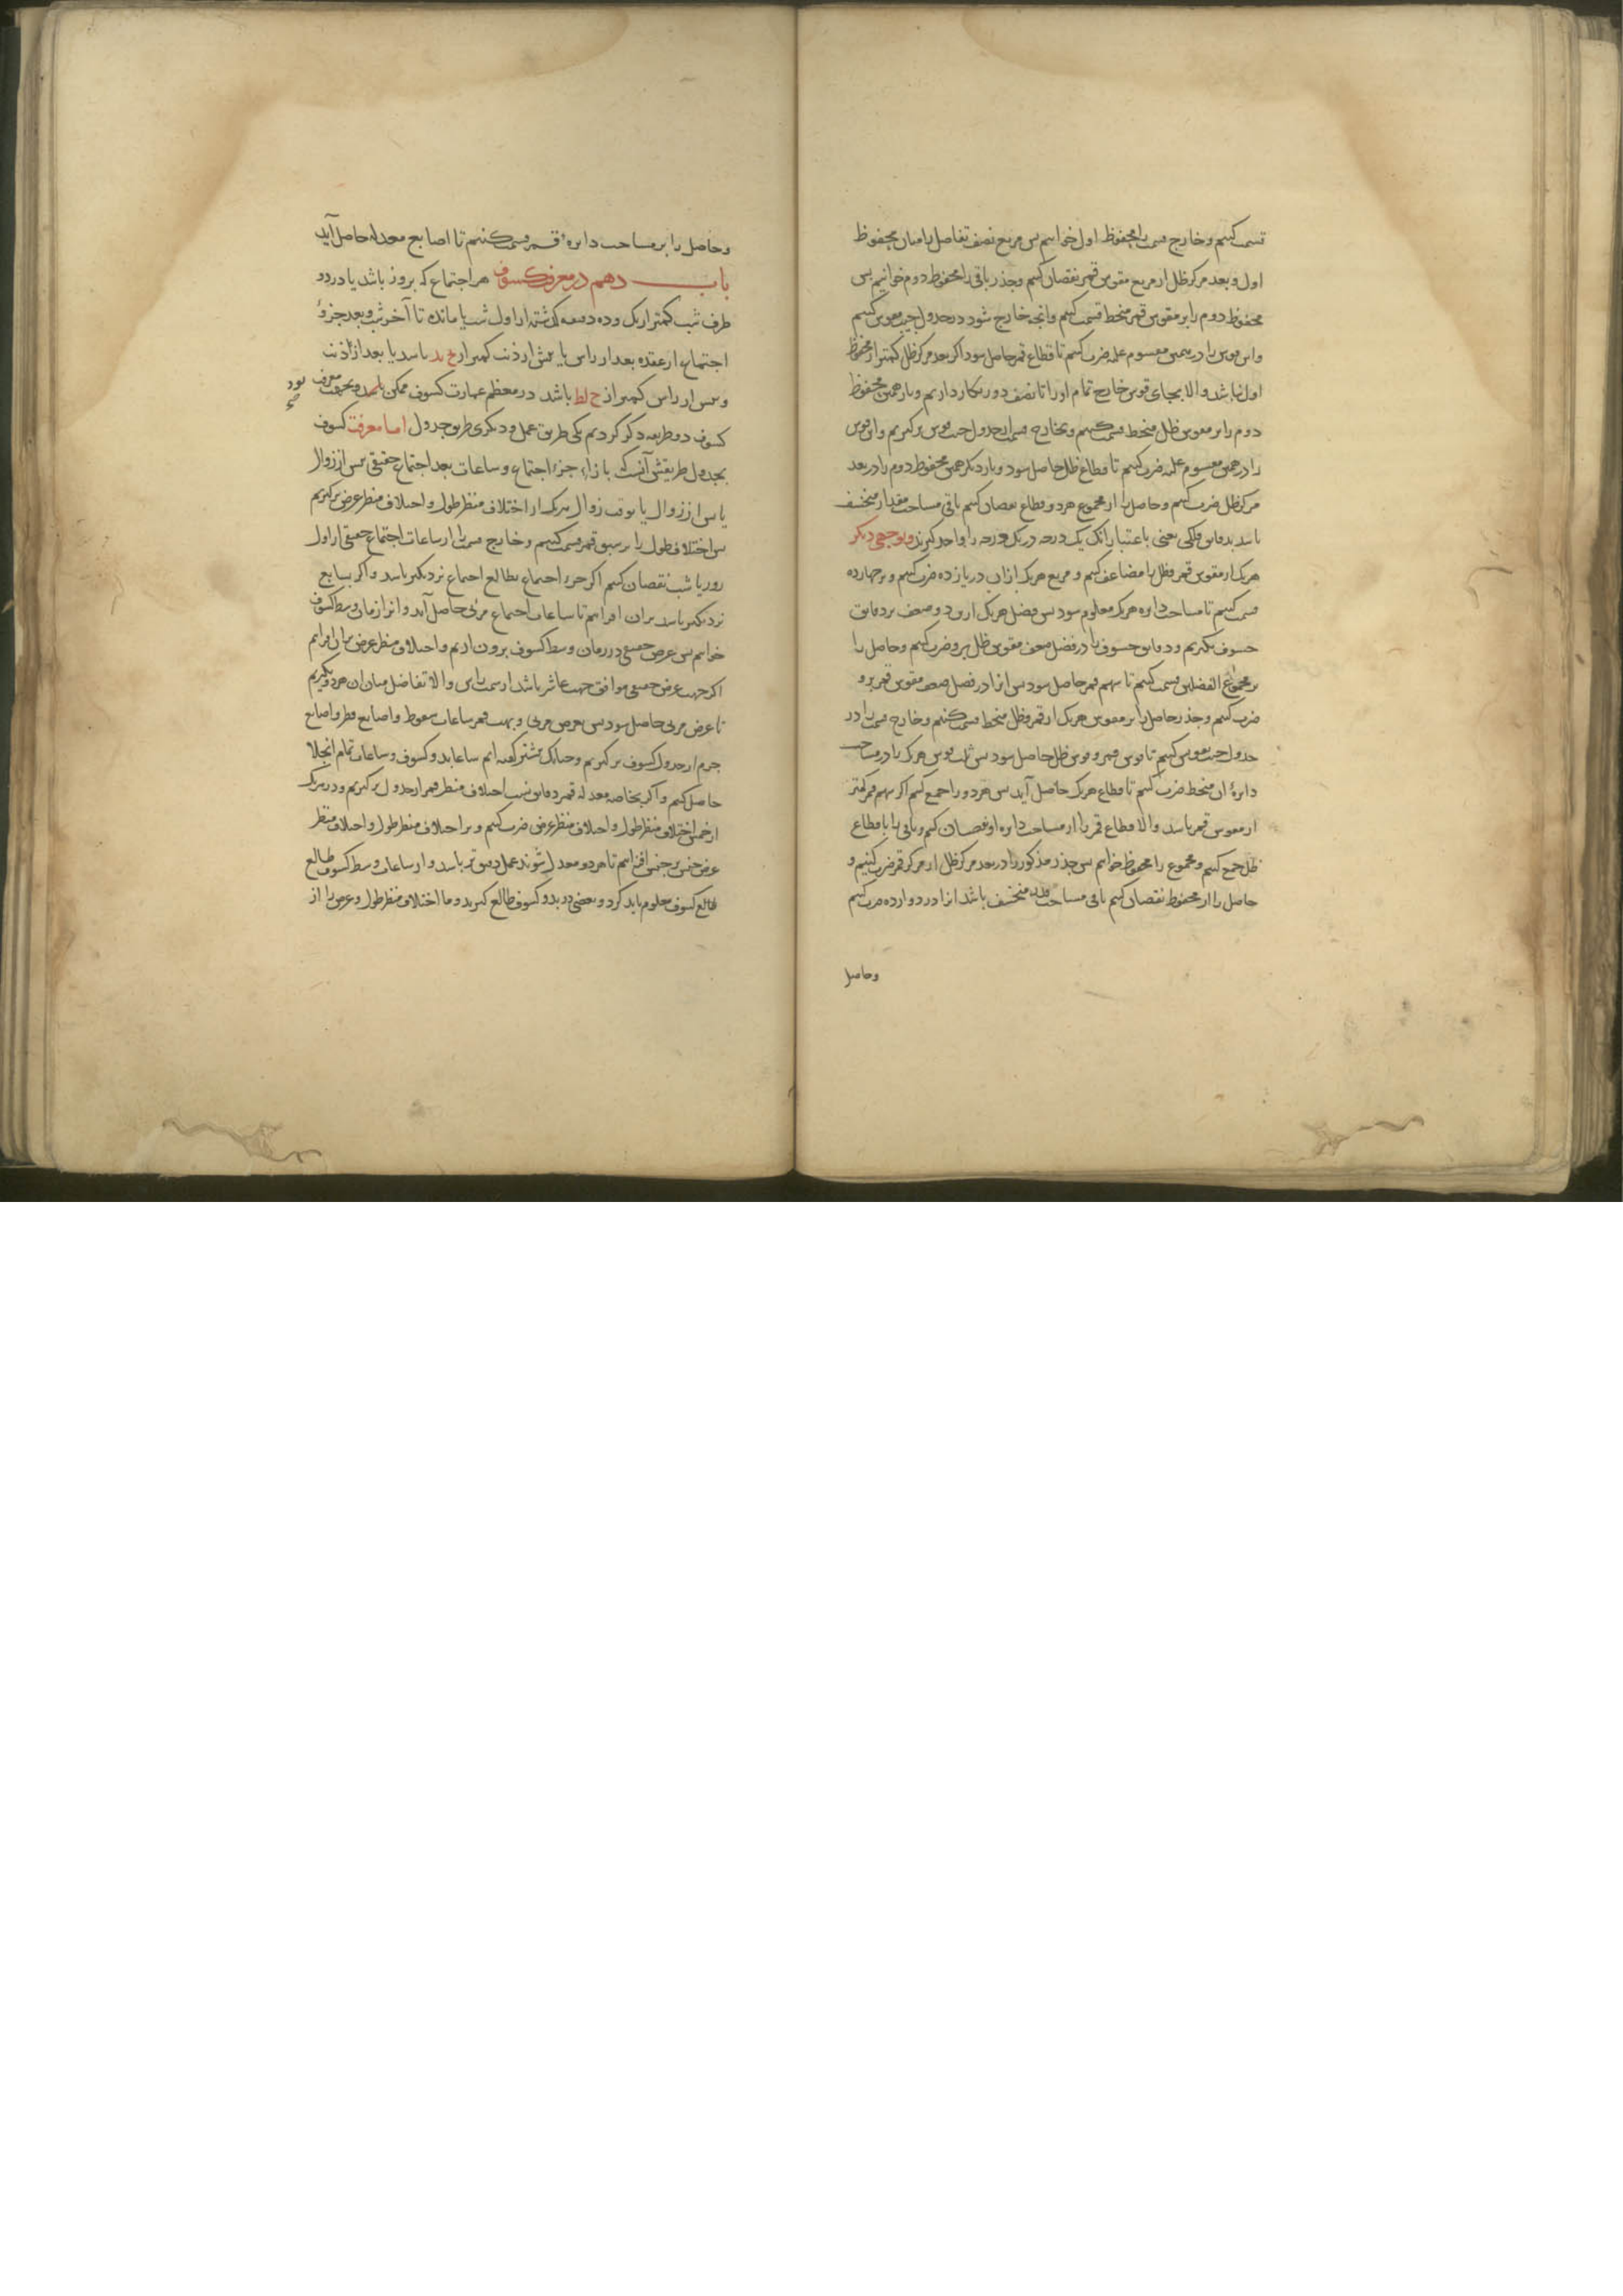 قسمت کنیم و خارج قسمت را محفوظ اول خوانیم پس مربع نصف تفاضل را میان محفوظ
اول و بعد مرکز ظل از مربع مقوس قمر نقصان کنیم و جذر باقی را محفوظ دوم خوانیم پس
محفوظ دوم را بر مقوس قمر منحط قسمت کنیم و آنچه خارج شود در جدول جیب مقوس کنیم
و این قوس را در همین مقسوم علیه ضرب کنیم تا قطاع قمر حاصل شود اگر بعد مرکز ظل کمتر از محفوظ
اول نباشد و الا بجای قوس خارج تمام او را تا نصف دور بکار داریم و بار همین محفوظ
دوم را بر مقوس ظل منحط قسمت کنیم و بخارج قسمت از جدول جیب قوس برگیریم و این قوس
را در همین مقسوم علیه ضرب کنیم تا قطاع ظل حاصل شود و بار دیگر همین محفوظ دوم را در بعد
مرکز ظل ضرب کنیم و حاصل را از مجموع هر دو قطاع نقصان کنیم باقی مساحت مقدار منخسف
باشد بدقایق فلکی یعنی باعتبار آنک یک درجه در یک درجه را واحد گیرند و بوجهی دیگر
هر یک از مقوس قمر و ظل را مضاعف کنیم و مربع هر یک از آن در یازده ضرب کنیم و بر چهارده
قسمت کنیم تا مساحت دایره هر یک معلوم شود پس فضل هر یک ازین دو ضعف بر دقایق
خسوف بگیریم و دقایق خسوف را در فضل ضعف مقوس ظل برو ضرب کنیم و حاصل را
بر مجموع الفضلین قسمت کنیم تا سهم قمر حاصل شود پس آنرا در فضل ضعف مقوس قمر برو
ضرب کنیم و جذر حاصل را بر مقوس هر یک از قمر و ظل منحط قسمت کنیم و خارج قسمت را در
جدول جیب مقوس کنیم تا قوس قمر و قوس ظل حاصل شود پس قوس هر یک را در مساحت
دایرهٔ آن منحط ضرب کنیم تا قطاع هر یک حاصل آید پس هر دو را جمع کنیم اگر سهم قمر کمتر
از مقوس قمر باشد و الا قطاع قمر را از مساحت دایره او نقصان کنیم و باقی را با قطاع
ظل جمع کنیم و مجموع را محفوظ خوانیم پس جذر مذکور را در بعد مرکز ظل از مرکز قمر ضرب کنیم و
حاصل را از محفوظ نقصان کنیم باقی مساحت منخسف باشد آنرا در دوازده ضرب کنیم
وحاصل
و حاصل را بر مساحت دایرهٔ قمر قسمت کنیم تا اصابع معدله حاصل آید
باب دهم در معرفت کسوف هر اجتماع که بروز باشد یا در دو
طرف شب کمتر از یک و ده دقیقه گذشته از اول شب یا مانده تا آخر شب و بعد جزؤ
اجتماع از عقده بعد از راس یا پیش از ذنب کمتر از باشد یا بعد از ذنب
و پیش از راس کمتر از ح لط باشد در معظم عمارت کسوف ممکن و بجهت معرفت
بود
کسوف دو طریقه ذکر کردیم یکی طریق عمل و دیگری طریق جدول اما معرفت کسوف
بجدول طریقش آنست که بازاء جزء اجتماع و ساعات بعد اجتماع حقیقی پیش از زوال
یا پس از زوال یا بوقت زوال هر یک از اختلاف منظر طول و اختلاف منظر عرض برگیریم
پس اختلاف طول را بر سبق قمر قسمت کنیم و خارج قسمت را از ساعات اجتماع حقیقی از اول
روز یا شب نقصان کنیم اگر جزء اجتماع بطالع اجتماع نزدیکتر باشد و اگر بسابع
نزدیکتر باشد بران افزاییم تا ساعات اجتماع مرئی حاصل آید و آنرا زمان وسط کسوف
خوانیم پس عرض حقیقی در زمان وسط کسوف برون آریم و اختلاف منظر عرض بران افزاییم
اگر جهت عرض حقیقی موافق جهت عاشر باشد از سمت راس و الا تفاضل میان آن هر دو بگیریم
تا عرض مرئی حاصل شود پس بعرض مرئی و بهت قمر ساعات سقوط و اصابع قطر و اصابع
جرم از جدول کسوف برگیریم و چنانک پیشتر گفته ایم ساعات بدو کسوف و ساعات تمام انجلا
حاصل کنیم و اگر بخاصه معدله قمر دقایق نسب اختلاف منظر قمر از جدول برگیریم و در هر یک
از خمس اختلاف منظر طول و اختلاف منظر عرض ضرب کنیم و بر اختلاف منظر طول و اختلاف منظر
عرض جنس بر جنس افزاییم تا هر دو معدل شوند عمل دقیق تر باشد و از ساعات وسط کسوف طالع
طالع کسوف معلوم باید کرد و بعضی در بدو کسوف طالع گیرند و ما اختلاف منظر طول و عرض را از